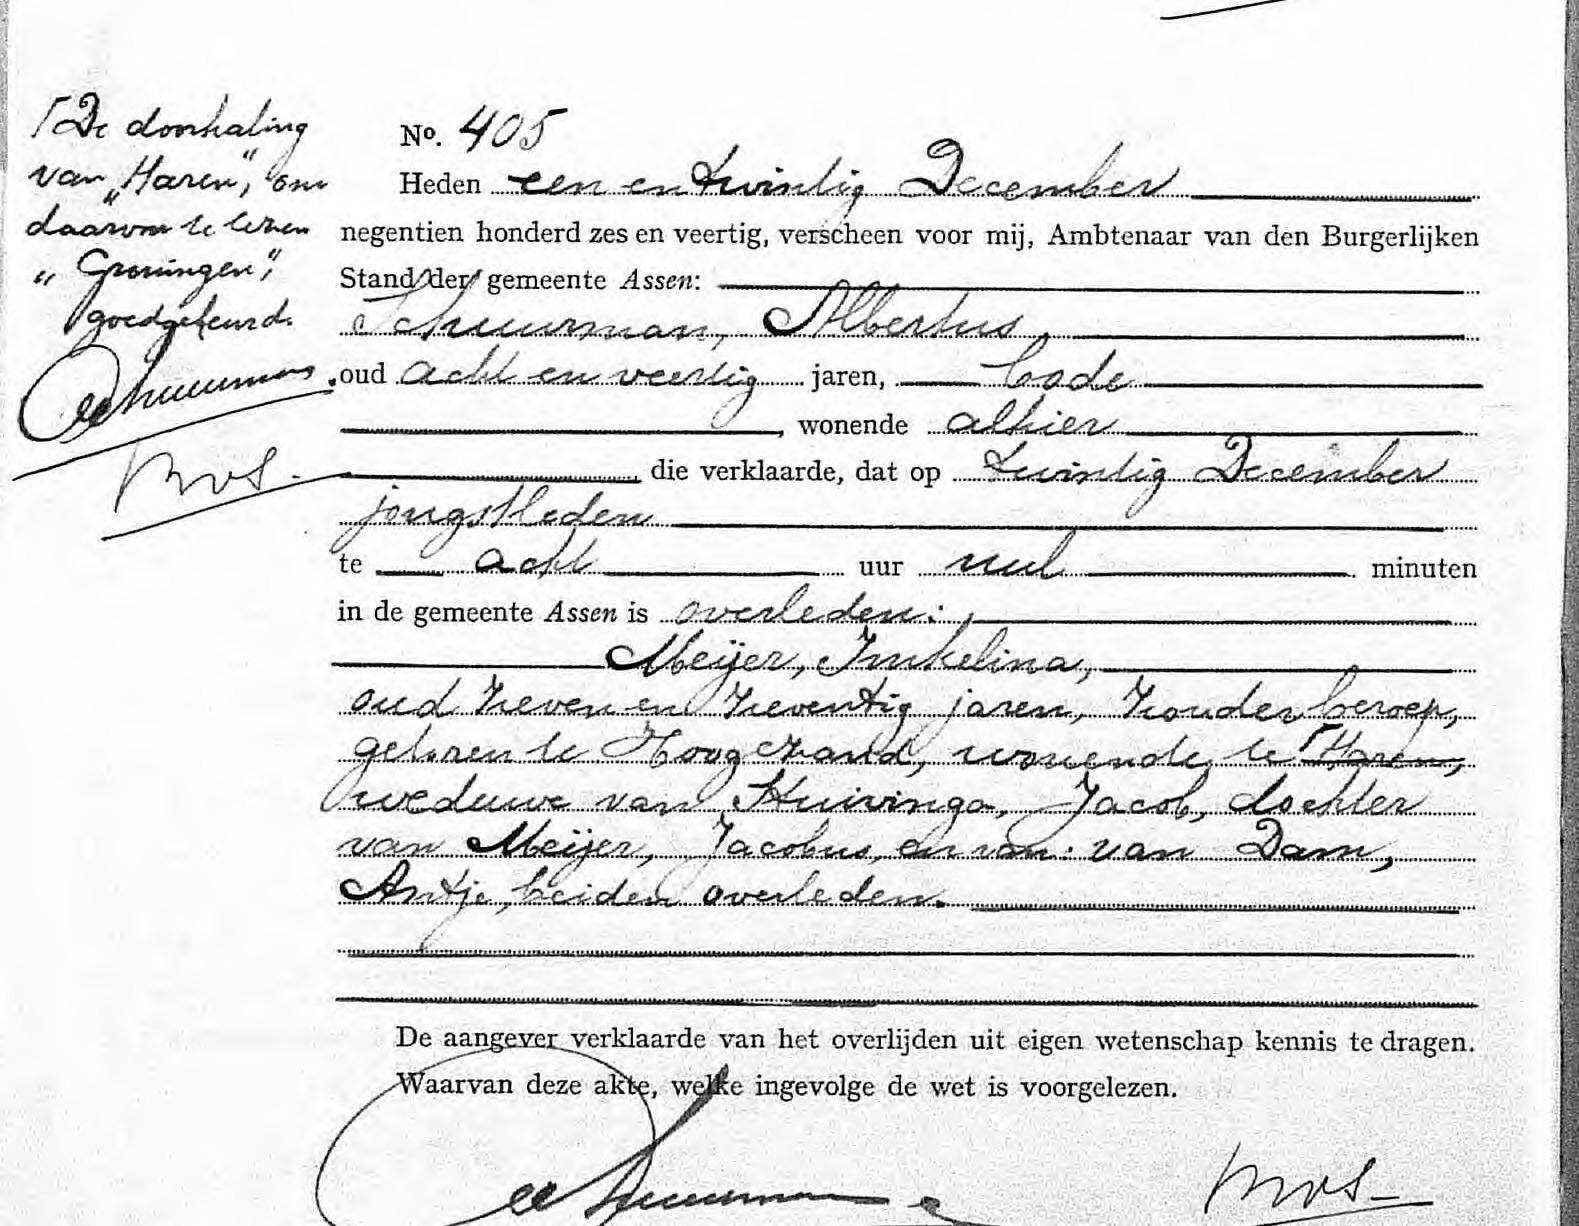 ⌈De doorhaling
van „Haren", om
daarvoor te lezen
„Groningen",
goedgekeurd.
Schuurman
No. 405
Heden een en twintig December
negentien honderd zes en veertig, verscheen voor mij, Ambtenaar van den Burgerlijken
Stand der gemeente Assen:
Schuurman, Albertus,
oud acht en veertig jaren, bode
, wonende alhier
die verklaarde, dat op twintig December
jongstleden
te acht uur nul minuten
in de gemeente Assen is overleden:
Meijer, Imkelina,
oud zeven en zeventig jaren, zonder beroep,
geboren te Hoogezand, wonende te ⌈Haren,
weduwe van Huizinga, Jacob, dochter
van Meijer, Jacobus, en van van Dam,
Antje, beiden overleden.
De aangever verklaarde van het overlijden uit eigen wetenschap kennis te dragen.
Waarvan deze akte, welke ingevolge de wet is voorgelezen.
Schuurman